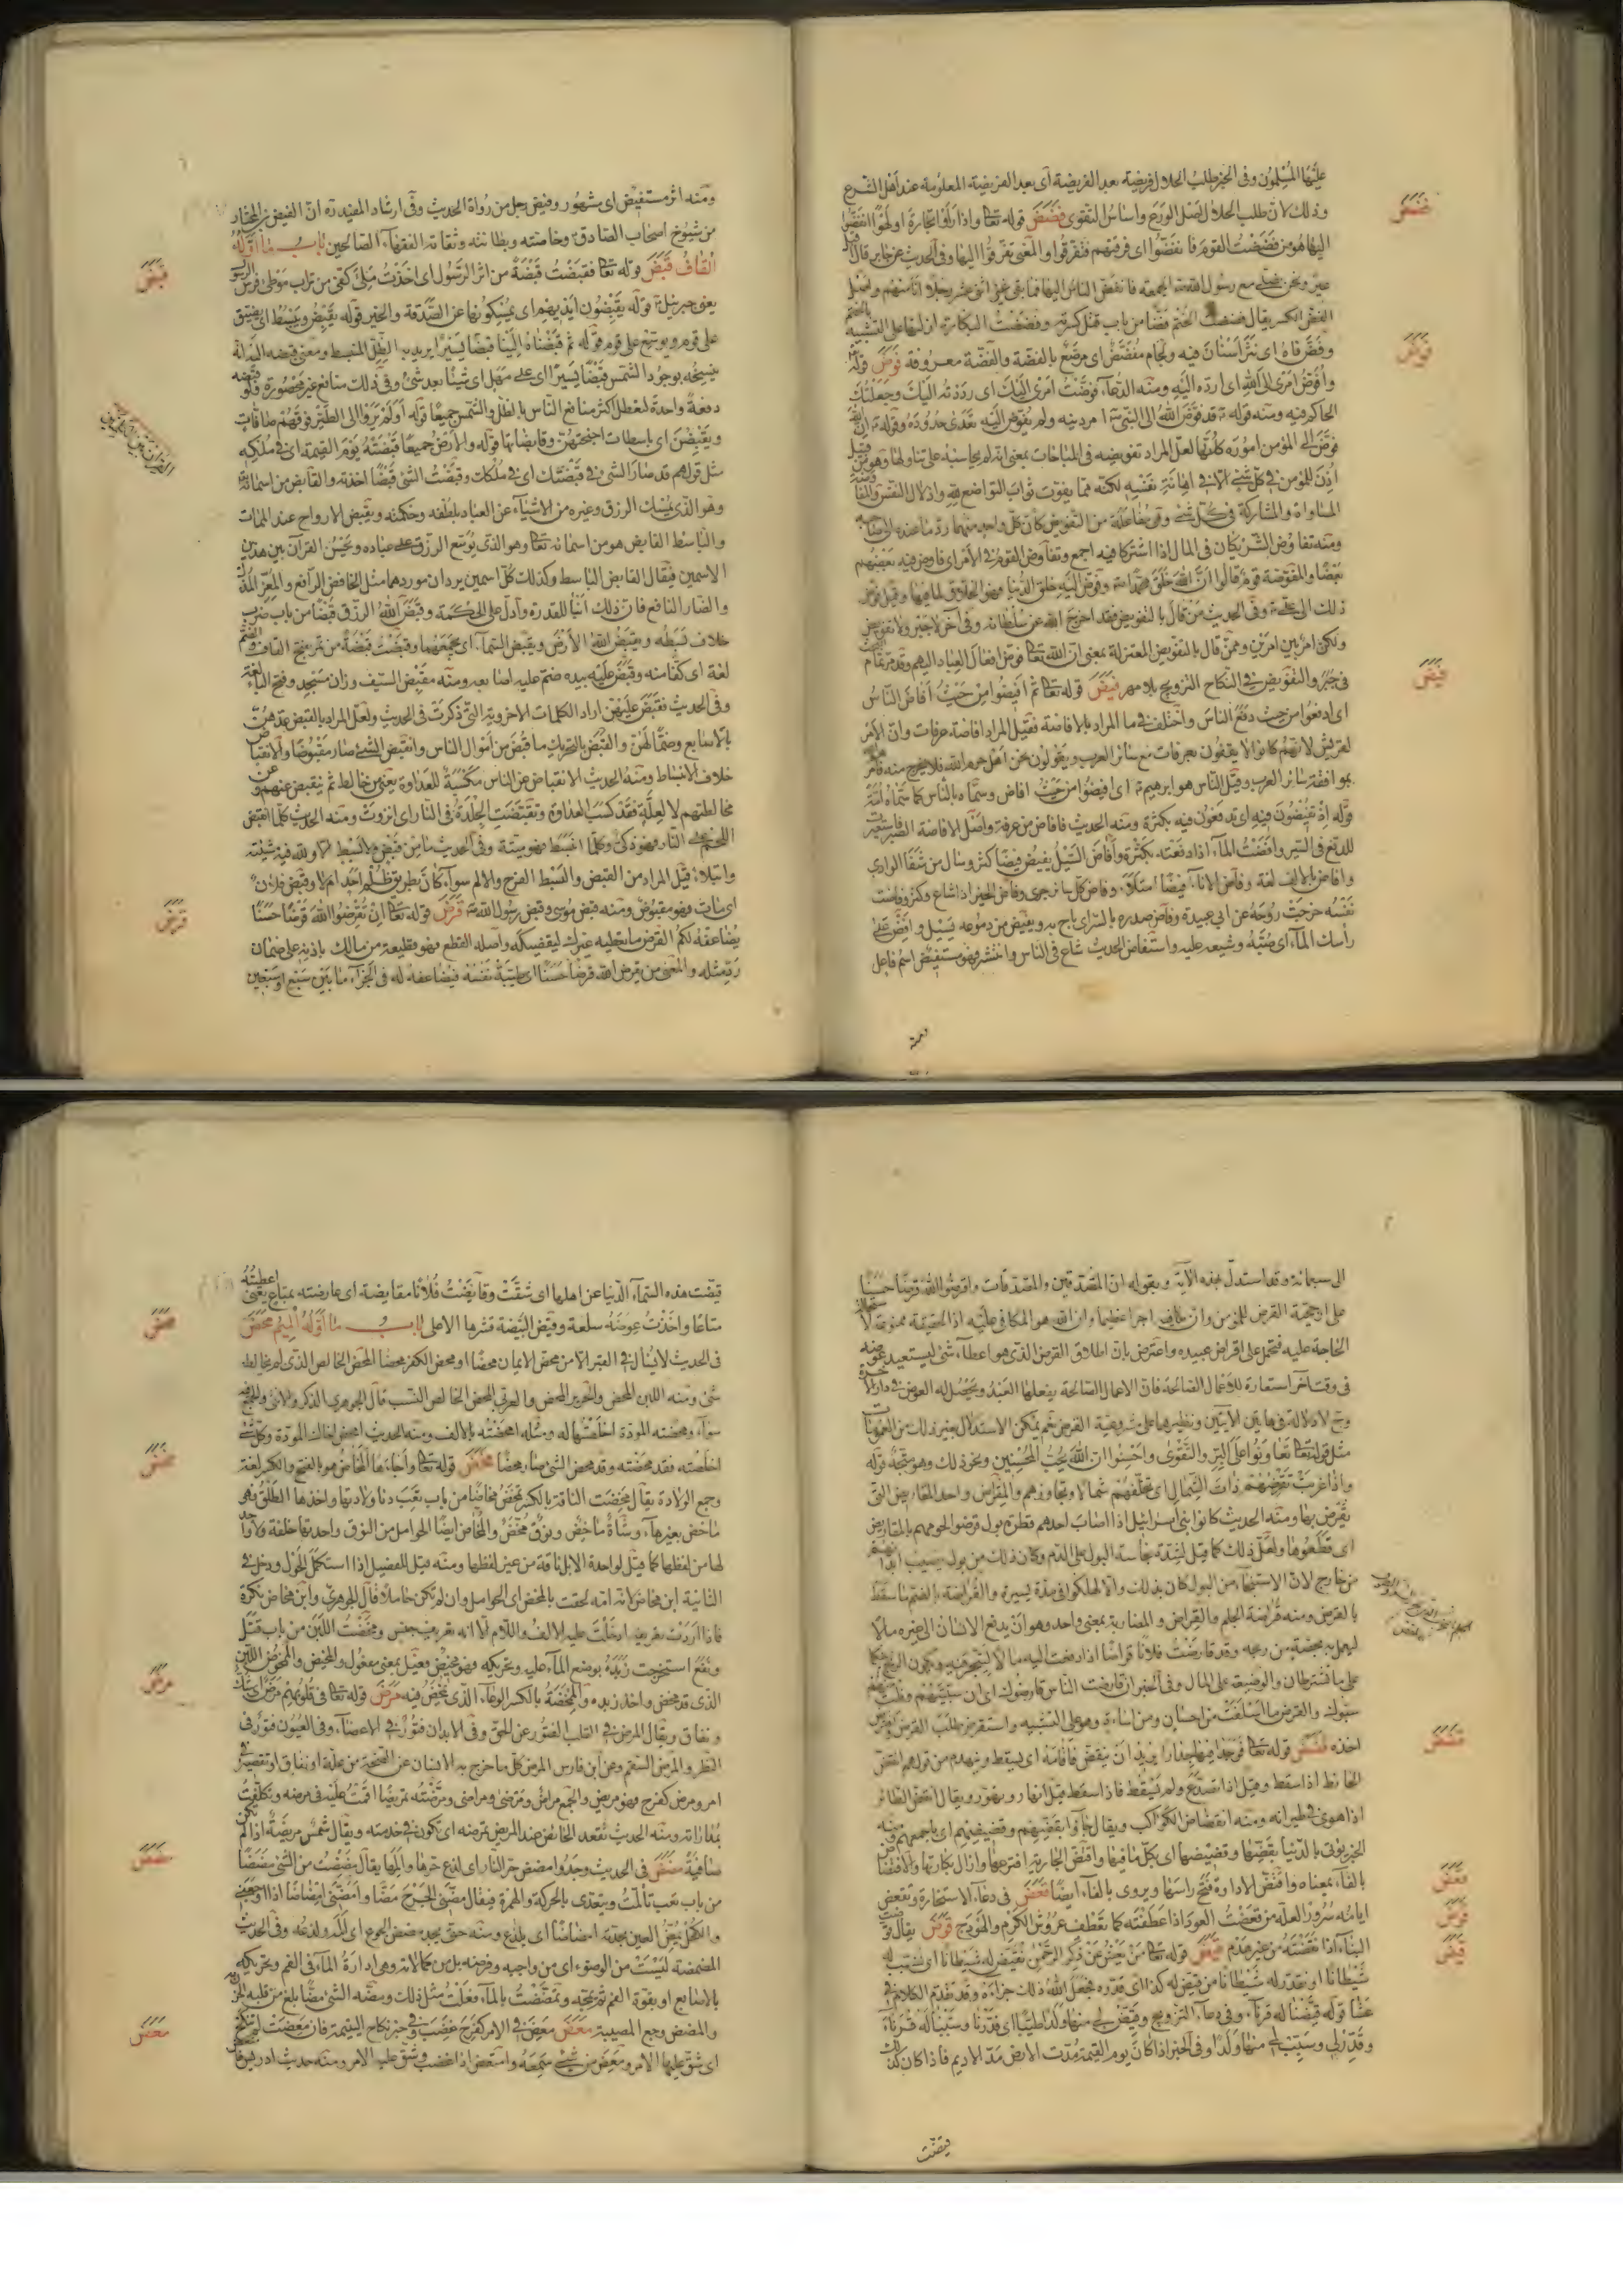 عليها المسلمون وفى الخبر طلب الحلال فريضة بعد الفريضة اى بعد الفريضة المعلومة عند اهل الشرع
وذلك لان طلب الحلال اصل الورع واساس التقوى فضض قوله تعا واذا راوا تجارة او لهوا انفضوا
اليها هو من فضضت القوم فانفضوا اى فرقتهم فتفرقوا والمعنى تفرقوا اليها وفى الحديث عن جابر قال اقبلت
عير ونحن نصلى مع رسول الله الجمعة فانفض الناس اليها فما بقى غير اثنى عشر رجلا انا منهم واصل
الفض الكسر يقال فضضت الختم فضا من باب قتل كسرته وفضضت البكارة ازلتها على التشبيه بالختم
وفض فاه اى نثر اسنان فيه ولجام مفضض اى مرصع بالفضة والفضة معروفة فوض قوله
وافوض امرى الى الله اى ارده اليه ومنه الدعاء فوضت امرى اليك اى رددته اليك وجعلتك
الحاكم فيه ومنه قوله قد فوض الله الى النبى امر دينه ولم يفوض اليه تعدى حدوده وقوله ان الله
فوض الى المؤمن اموره كلها لعل المراد تفويضه فى المباحات بمعنى انه لم يحاسبه على تناولها وهو من قبيل
المساواة والمشاركة فى كل شئ وهى مفاعلة من التفويض كان كل واحد منهما رد ما عنده الى صاحبه
ومنه تفاوض الشريكان فى المال اذا اشتركا فيه اجمع وتفاوض القوم فى الامر اى فاوض فيه بعضهم
بعضا والمفوضة قوم قالوا ان الله خلق محمدا وفوض اليه خلق الدنيا فهو الخلاق لما فيها وقيل فوض
ذلك الى على وفى الحديث من قال بالتفويض فقد اخرج الله عن سلطانه وفى آخر لا جبر ولا تفويض
ولكن امر بين امرين وممن قال بالتفويض المعتزلة بمعنى ان الله تعا فوض افعال العباد اليهم وقد مر تمام البحث
فى جبر والتفويض فى النكاح التزويج بلا مهر فيض قوله تعا ثم افيضوا من حيث افاض الناس
اى ادفعوا من حيث دفع الناس واختلف فى ما المراد بالافاضة فقيل المراد افاضة عرفات وان الامر
لقريش لانهم كانوا لا يقفون بعرفات مع سائر العرب ويقولون نحن اهل حرم الله فلا نخرج منه فامرهم
بموافقة سائر العرب وقيل الناس هو ابرهيم اى افيضوا من حيث افاض وسماه بالناس كما سماه امة
قوله اذ تفيضون فيه اى تدفعون فيه بكثرة ومنه الحديث فافاض من عرفة واصل الافاضة الصب فاستعيرت
للدفع فى السير وافضت الماء اذا دفعته بكثرة وافاض السيل يفيض فيضا كثر وسال من شفا الوادى
وافاض بالالف لغة وفاض الاناء فيضا امتلا وفاض كل سائل جرى وفاض الخير اذا شاع وكثر وفاضت
نفسه خرجت روحه عن ابى عبيدة وفاض صدره بالسر اى باح به ويفيض من دموعه يسيل وافض على
راسك الماء اى صبه وشيعه عليه واستفاض الحديث شاع فى الناس وانتشر فهو مستفيض اسم فاعل
ومنه
فضض
فوض
فيض
ومنه اثر مستفيض اى مشهور وفيض رجل من رواة الحديث وفى ارشاد المفيد ره ان الفيض بن المختار
من شيوخ اصحاب الصادق وخاصته وبطانته وثقاته الفقهاء الصالحين باب ما اوله
القاف قبض قوله تعا فقبضت قبضة من اثر الرسول اى اخذت ملئ كفى من تراب موطئ فرس الرسول
يعنى جبرئيل قوله يقبضون ايديهم اى يمسكونها عن الصدقة والخير قوله يقبض ويبسط اى يضيق
على قوم ويوسع على قوم قوله ثم قبضناه الينا قبضا يسيرا يريد به الظل المنبسط ومعنى قبضه اليه انه
ينسخه بوجود الشمس قبضا يسيرا اى على مهل اى شيئا بعد شئ وفى ذلك منافع غير محصورة ولو قبضه
دفعة واحدة لتعطل اكثر منافع الناس بالظل والشمس جميعا قوله اولم يروا الى الطير فوقهم صافات
ويقبضن اى باسطات اجنحتهن وقابضاتها قوله والارض جميعا قبضته يوم القيمة اى فى ملكه
مثل قولهم قد صار الشئ فى قبضتك اى فى ملكك وقبضت الشئ قبضا اخذته والقابض من اسمائه تعا
وهو الذى يمسك الرزق وغيره من الاشياء عن العباد بلطفه وحكمته ويقبض الارواح عند الممات
والباسط القابض هو من اسمائه تعا وهو الذى يوسع الرزق على عباده ويحسن القرآن بين هذين
الاسمين فيقال القابض الباسط وكذلك كل اسمين يردان موردهما مثل الخافض الرافع والمعز المذل
والضار النافع فان ذلك انبأ للقدرة وادل على الحكمة وقبض الله الرزق قبضا من باب ضرب
خلاف بسطه ويقبض الله الارض ويقبض السماء اى يجمعهما وقبضت قبضة من تمر بفتح القاف والضم
لغة اى كفا منه وقبض عليه بيده ضم عليه اصابعه ومنه مقبض السيف وزان مسجد وفتح الباء لغة
وفى الحديث فقبض عليهن اراد الكلمات الاخروية التى ذكرت فى الحديث ولعل المراد بالقبض عدهن
بالاصابع وضما لهن والقبض بالتحريك ما قبض من اموال الناس وانقبض الشئ صار مقبوضا والانقباض
خلاف الانبساط ومنه الحديث الانقباض عن الناس مكسبة للعداوة يعنى من خالط ثم ينقبض عنهم وعن
مخالطتهم لا لعلة فقد كسب العداوة وتقبضت الجلدة فى النار اى انزوت ومنه الحديث كلما انقبض
اللحم على النار فهو ذكى وكلما انبسط فهو ميتة وفى الحديث ما من قبض ولا بسط الا ولله فيه مشيئة
وابتلاء قيل المراد من القبض والبسط الفرح والالم سواء كان بطريق ظلم احد ام لا وقبض فلان
اى مات فهو مقبوض ومنه قبض موسى وقبض رسول الله قرض قوله تعا ان تقرضوا الله قرضا حسنا
يضاعفه لكم القرض ما تعطيه غيرك ليقضيكه واصله القطع فهو قطيعة من مالك باذنه على ضمان
رد مثله والمعنى من يقرض الله قرضا حسنا اى طيبة نفسه فيضاعفه له فى الجزاء ما بين سبع او سبعين
قبض
قرض
الى سبعمائة وقد استدل بهذه الآية وبقوله ان المصدقين والمصدقات واقرضوا الله قرضا حسنا
على ارجحية القرض للمؤمن وان عليه اجرا عظيما وان الله هو المكافى عليه اذ الحقيقة ممنوعة لاستحالة
الحاجة عليه فتحمل على اقراض عبيده واعترض بان اطلاق القرض الذى هو اعطاء شئ ليستعيد عوضه
فى وقت آخر استعارة للاعمال الصالحة فان الاعمال الصالحة يفعلها العبد ويحصل له العوض فى دار الآخرة
وح لا دلالة فى هاتين الآيتين ونظيرهما على مشروعية القرض نعم يمكن الاستدلال بغير ذلك من العمومات
مثل قوله تعا تعاونوا على البر والتقوى واحسنوا ان الله يحب المحسنين ونحو ذلك وهو متجه قوله
واذا غربت تقرضهم ذات الشمال اى تخلفهم شمالا وتجاوزهم والمقراض واحد المقاريض التى
يقرض بها ومنه الحديث كانوا بنى اسرائيل اذا اصاب احدهم قطرة بول قرضوا لحومهم بالمقاريض
اى قطعوها ولعل ذلك كما قيل لشدة نجاسة البول على الدم وكان ذلك من بول يصيب ابدانهم
من خارج لان الاستنجاء من البول كان بذلك والا لهلكوا فى مدة يسيرة والقراضة بالضم ما سقط
بالقرض ومنه قراضة الجلم والقراض والمضاربة بمعنى واحد وهو ان يدفع الانسان الى غيره مالا
ليعمل به بحصة من ربحه وقد قارضت فلانا قراضا اذا دفعت اليه مالا ليتجر به ويكون الربح بينكما
على ما تشترطان والوضيعة على المال وفى الخبر ان قارضت الناس قارضوك اى ان سببتهم ونلت منهم
سبوك والقرض ما اسلفت من احسان ومن اساءة وهو على التشبيه واستقرض طلب القرض واقترض
اخذه قضض قوله تعا فوجدا فيها جدارا يريد ان ينقض فاقامه اى يسقط وينهدم من قولهم انقض
الحائط اذا سقط وقيل اذا تصدع ولم يسقط فاذا سقط قيل انهار وتهور ويقال انقض الطائر
اذا هوى فى طيرانه ومنه انقضاض الكواكب ويقال جاؤا بقضهم وقضيضهم اى باجمعهم ومنه
الخبر يؤتى بالدنيا بقضها وقضيضها اى بكل ما فيها واقتض الجارية افترعها وازال بكارتها والاقتضاض
بالفاء بمعناه واقتض الاداوة فتح راسها ويروى بالفاء ايضا قعض فى دعاء الاستخارة وتقعض
ايامه سرورا لعله من قعضت العود اذا عطفته كما تعطف عروش الكرم والهودج قوض يقال قوضت
البناء اذا نقضته من غير هدم قيض قوله تعا من يعش عن ذكر الرحمن نقيض له شيطانا اى نسبب له
شيطانا او نقدر له شيطانا من قيض له كذا اى قدره فجعل الله ذلك جزاءه وقد تقدم الكلام فى
عشا قوله قيضنا له قرناء وفى دعاء التزويج وقيض لى منها ولدا طيبا اى قدرنا وسببنا له قرناء
وقدر لى وسبب لى منها ولدا وفى الخبر اذا كان يوم القيمة مدت الارض مد الاديم فاذا كان كذلك
قيضت
قضض
قعض
قوض
قيض
قيضت هذه السماء الدنيا عن اهلها اى شقت وقايضت فلانا مقايضة اى عارضته بمتاع يعنى اعطيته
متاعا واخذت عوضه سلعة وقيض البيضة قشرها الاعلى باب ما اوله الميم محض
فى الحديث لا يسأل فى القبر الا من محض الايمان محضا او محض الكفر محضا المحض الخالص الذى لم يخالطه
شئ ومنه اللبن المحض والحرير المحض والعربى المحض الخالص النسب قال الجوهرى الذكر والانثى والجمع فيه
سواء ومحضته المودة اخلصتها له ومثله امحضته بالالف ومنه الحديث امحض اخاك المودة وكل شئ
اخلصته فقد محضته وقد محض الشئ صار محضا مخض قوله تعا فاجاءها المخاض هو بالفتح والكسر لغة
وجع الولادة يقال مخضت الناقة بالكسر تمخض مخاضا من باب تعب دنا ولادتها واخذها الطلق فهى
ماخض بغير هاء وشاة ماخض ونوق مخض والمخاض ايضا الحوامل من النوق واحدتها خلفة ولا واحد
لها من لفظها كما قيل لواحدة الابل ناقة من غير لفظها ومنه قيل للفصيل اذا استكمل الحول ودخل فى
الثانية ابن مخاض لانه امه لحقت بالمخض اى الحوامل وان لم تكن حاملا قال الجوهرى وابن مخاض نكرة
فاذا اردت تعريفه ادخلت عليه الالف واللام الا انه تعريف جنس ومخضت اللبن من باب قتل
ونفع استخرجت زبده بوضع الماء عليه وتحريكه فهو مخيض فعيل بمعنى مفعول والمخيض والممخوض اللبن
الذى قد مخض واخذ زبده والمخضة بالكسر الوعاء الذى يمخض فيه مرض قوله تعا فى قلوبهم مرض اى شك
ونفاق ويقال المرض فى القلب الفتور عن الحق وفى الابدان فتور فى الاعضاء وفى العيون فتور فى
النظر والمرض السقم وعن ابن فارس المرض كل ما خرج به الانسان عن الصحة من علة او نفاق او تقصير فى
امر ومرض كفرح فهو مريض والجمع مراض ومرضى ومراضى ومرضته تمريضا اقمت عليه فى مرضه وتكلفت
بمداراته ومنه الحديث تقعد الحائض عند المريض تمرضه اى تكون فى خدمته ويقال شمس مريضة اذا لم تكن
صافية مضض فى الحديث وجدوا مضض حر النار اى لذع حرها والمها يقال مضضت من الشئ مضضا
من باب تعب تالمت ويتعدى بالحركة والهمزة فيقال مضنى الجرح مضا وامضنى امضاضا اذا اوجعنى
والكحل يمض العين بحدته امضاضا اى يلذع ومنه حتى يجد مضض الجوع اى المه ولذعه وفى الحديث
المضمضة ليست من الوضوء اى من واجبه وفرضه بل من كمالاته وهى ادارة الماء فى الفم وتحريكه
بالاصابع او بقوة الفم ثم يمجه وتمضمضت بالماء فعلت مثل ذلك ومضه الشئ مضا بلغ من قلبه الحزن به
والمضض وجع المصيبة معض معض فى الامر كفرح غضب وفى خبر نكاح اليتيمة فان معضت لم تنكح
اى شق عليها الامر ومعض من شئ سمعه وامتعض اذا غضب وشق عليه الامر ومنه حديث ادريس
محض
مخض
مرض
مضض
معض